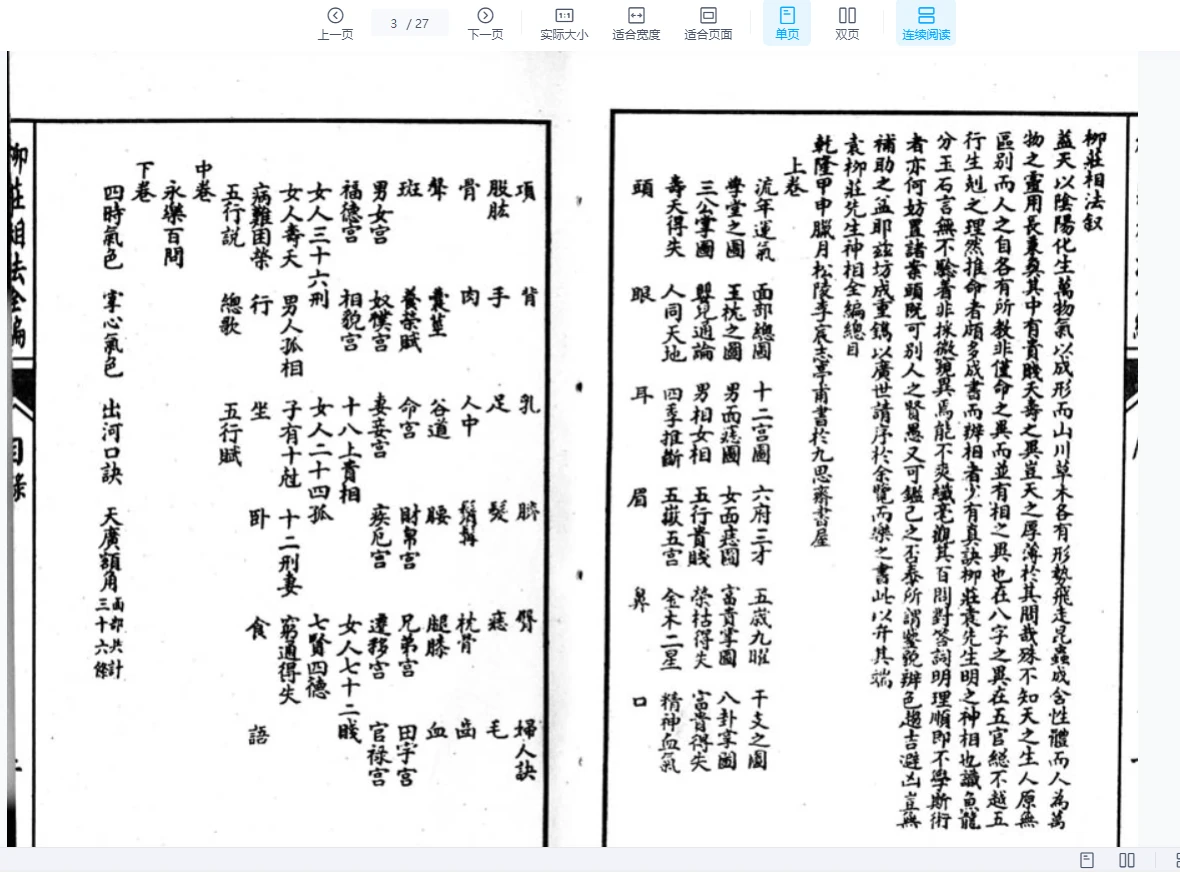 上一页
3 / 27
下一页
1:1
实际大小
适合宽度
适合页面
单页
双页
连续阅读
柳莊相法叙
蓋天以陰陽化生萬物氣以成形而山川草木各有形勢飛走昆蟲咸含性體而人為萬
物之靈用長秉彝其中有貴賤夭壽之異豈天之厚薄於其間哉殊不知天之生人原無
區别而人之自各有所教非僅命之異而並有相之異也在八字之異在五官總不越五
行生剋之理然推命者頗多成書而辦相者少有真訣柳莊袁先生明之神相也識魚龍
分玉石言無不驗著非採微窺異焉能不爽纖毫觀其百問對答詞明理順即不學斯術
者亦何妨置諸案頭既可别人之賢愚又可鑑己之否泰所謂鑒貌辨色趨吉避凶豈無
補助之益耶兹坊成重鐫以廣世請序於余覽而樂之書此以弁其端
乾隆甲申臘月松陵李宸志亭甫書於九思齋書屋
袁柳莊先生神相全編總目
上卷
流年運氣 面部總圖 十二宫圖 六府三才 五嶽九曜 干支之圖
學堂之圖 玉枕之圖 男面痣圖 女面痣圖 富貴掌圖 八卦掌圖
三公掌圖 嬰兒通論 男相女相 五行貴賤 榮枯得失 富貴得失
壽夭得失 人同天地 四季推斷 五嶽五官 金木二星 精神血氣
頭 眼 耳 眉 鼻 口
項 背 乳 臍 臀 婦人訣
股肱 手 足 髮 痣 毛
骨 肉 人中 鬚髯 枕骨 齒
聲 谷道 腰 腿膝 血
斑 養榮賦 命宫 財帛宫 兄弟宫 田宇宫
男女宫 奴僕宫 妻妾宫 疾厄宫 遷移宫 官禄宫
福德宫 相貌宫 十八上貴相 女人七十二賤
女人三十六刑 女人二十四孤 七賢四德
女人壽夭 男人孤相 子有十尅 十二刑妻 窮通得失
病難困榮 行 坐 卧 食 語
五行説 總歌 五行賦
中卷
永樂百問
下卷
四時氣色 掌心氣色 出河口訣 天廣額角 面部共計三十六條
柳莊相法全編
目錄